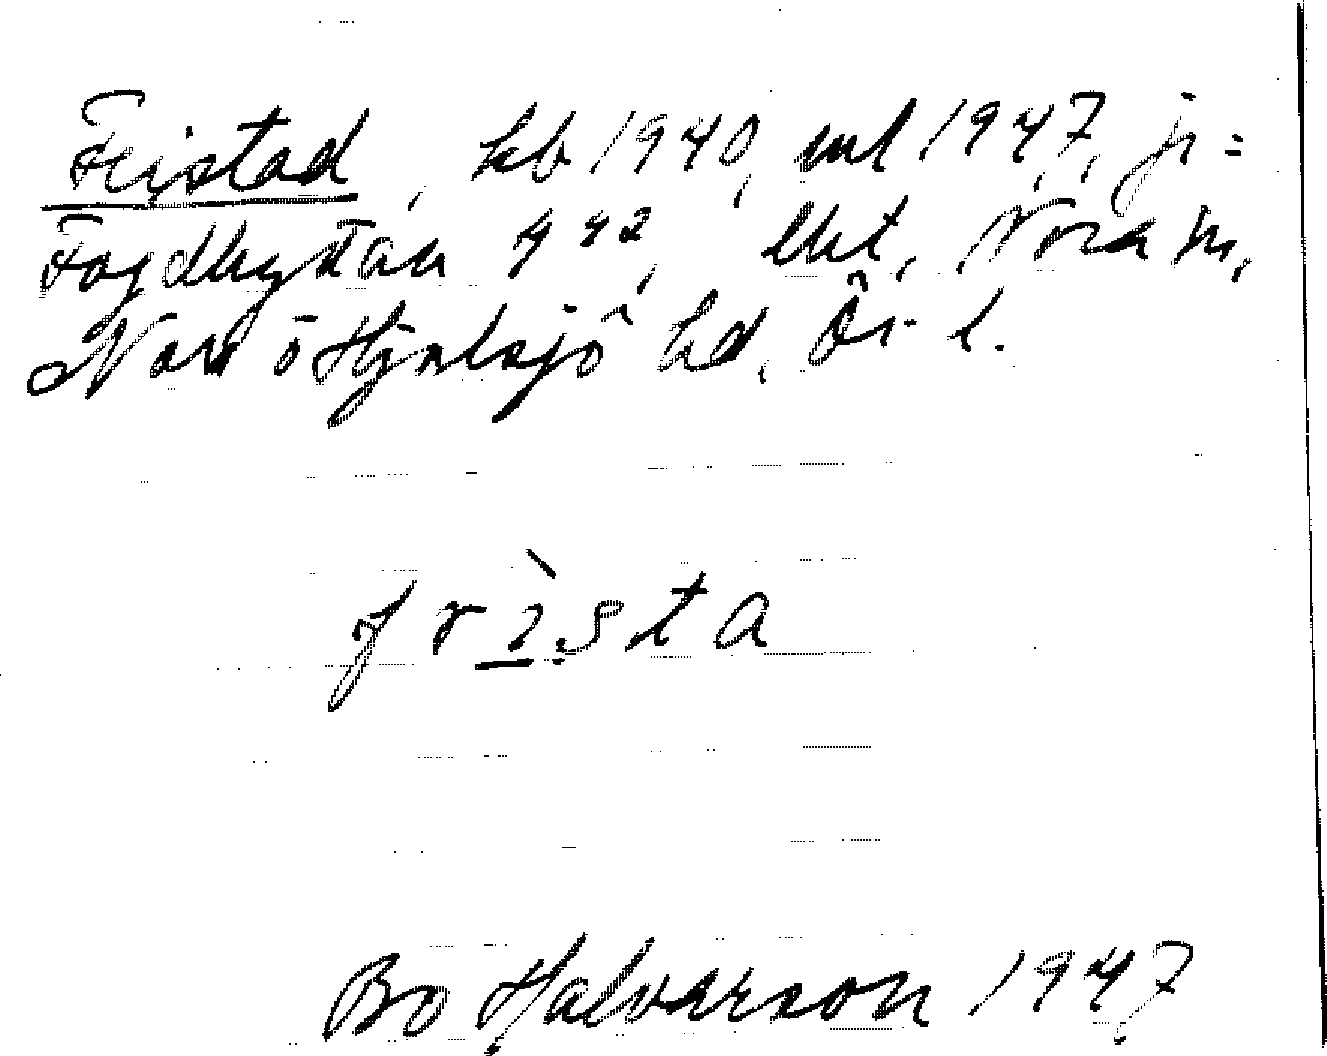 Fristad, kb 1940, ml 1947, jr =
Fogdhyttan 4 42, lht, Nora m,
Nora o Hjulsjö hd, Ör. l.
frista
Bo Halvarson 1947